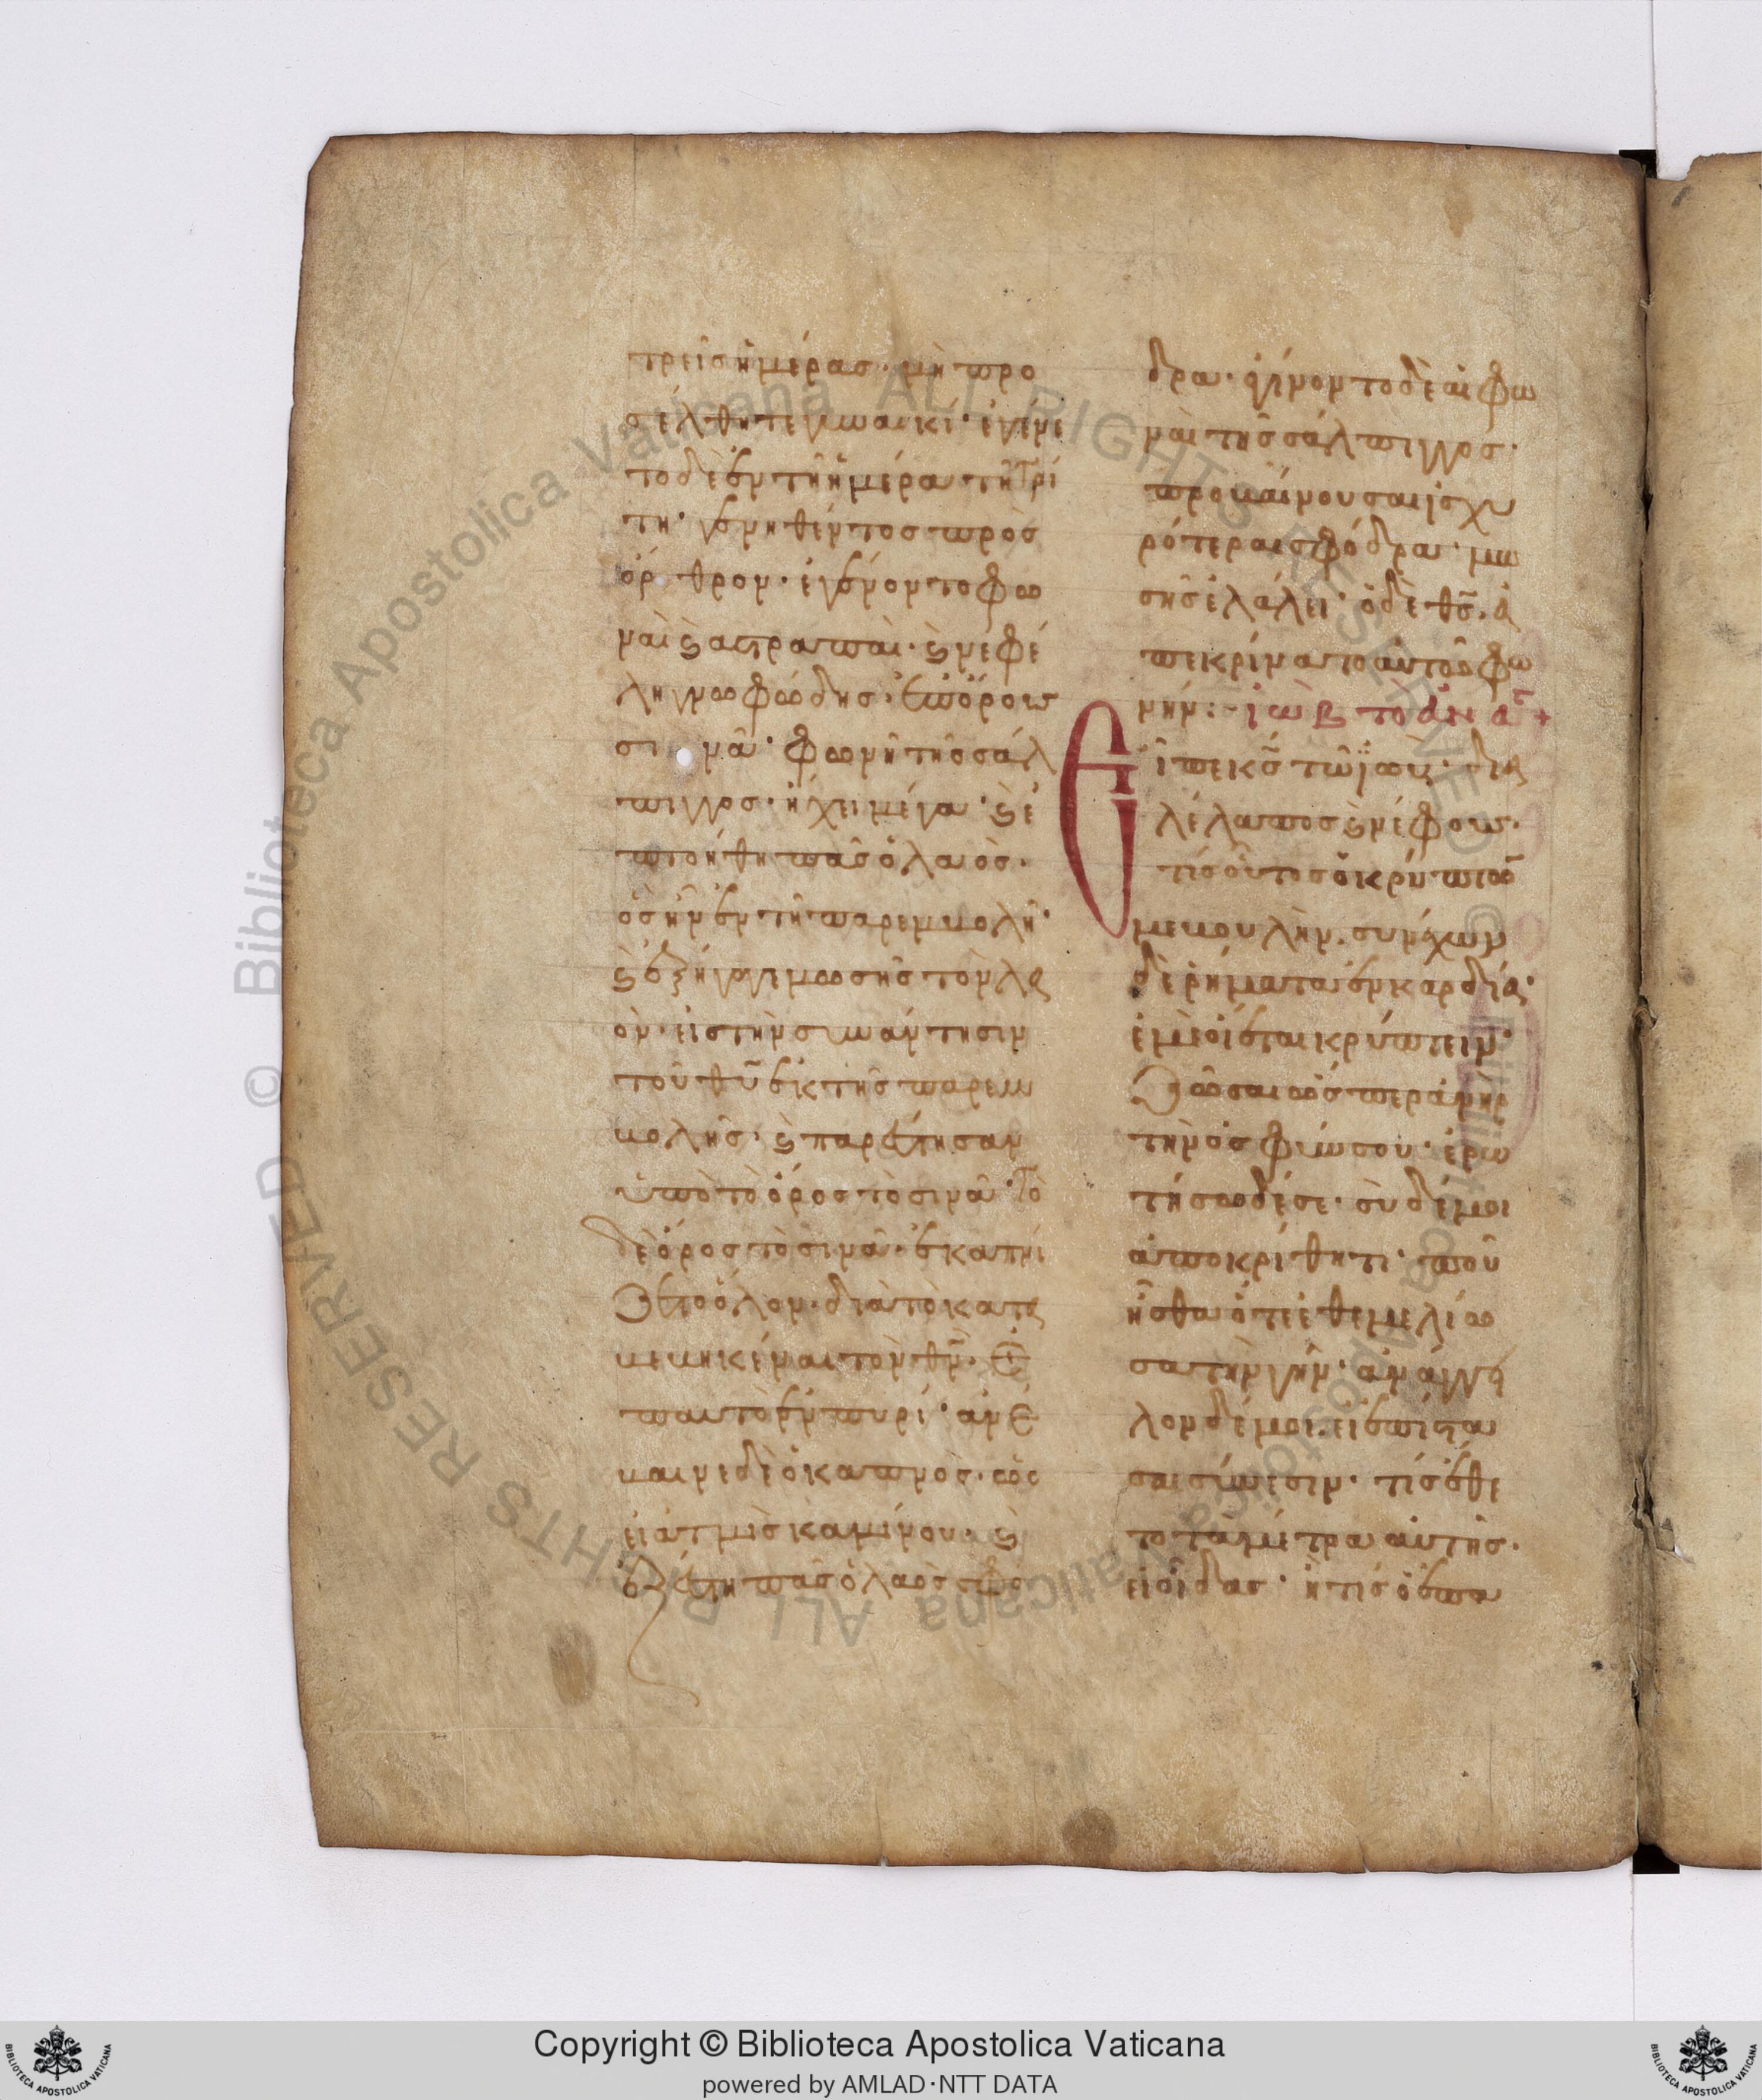 τρεῖς ἡμέρας· μὴ προ
σέλθητε γυναικί· ἐγένε
το δὲ ἐν τῆ ἡμέρα τῆ τρί
τη· γενηθέντος πρὸς
ὄρθρον· ἐγένοντο φω
ναὶ ϗ ἀστραπαὶ· ϗ νεφέ
λη γνοφώδης· ἐπ' ὄρους
σινᾶ· φωνὴ τῆς σάλ
πιγγος· ἤχει μέγα· ϗ ἐ
πτοήθη πᾶς ὁ λαὸς·
ὁς ἦν ἐν τῆ παρεμβολῆ·
ϗ ἐξήγαγε μωσῆς τὸν λα
ὸν· εἰς τὴν συνάντησιν
τοῦ θυ ἐκ τῆς παρεμ
βολῆς· ϗ παρέστησαν
ὑπὸ τὸ ὄρος τὸ σινᾶ· τὸ
δὲ ὄρος τὸ σινᾶ· ἐκαπνί
ζετο ὅλον· διὰ τὸ κατα
βεβηκέναι τὸν θν· ἐ
π' αυτὸ ἐν πυρί· ἀνέ
βαινε δὲ ὁ καπνὸς· ὡς
εἰ ἀτμὶς καμίνου· ϗ
ἐξέστη πᾶς ὁ λαὸς σφό
δρα· ἐγίνοντο δὲ αἱ φω
ναὶ τῆς σάλπιγγος·
προβαίνουσαι ἰσχυ
ρότεραι σφόδρα· μω
σῆς ἐλάλει· ὁ δὲ θς· ἀ
πεκρίνατο αὐτῶ φω
νήν:- ἰὼβ τὸ ἀνα +
Εἶπε κς τῶ ἰὼβ· δια
λέλαπος ϗ νέφους·
τίς οὗτος ὁ κρύπτων
με βουλὴν· συνέχων
δὲ ῥήματα ἐν καρδία·
ἐμὲ οἴεται κρύπτειν·
ζῶσαι ὥσπερ ἀνὴρ
τὴν ὀσφύν σου· ἐρω
τήσω δέ σε· σὺ δέ μοι
ἀποκρίθητι· ποῦ
ἦσθα ὅτε ἐθεμελίω
σα τὴν γῆν· ἀνάγγει
λον δέ μοι· εἰ ἐπίστα
σαι σύνεσιν· τίς ἔθε
το τὰ μέτρα αὐτῆς·
εἰ οἶδας· ἢ τίς ὁ ἐπα
Copyright © Biblioteca Apostolica Vaticana
powered by AMLAD·NTT DATA